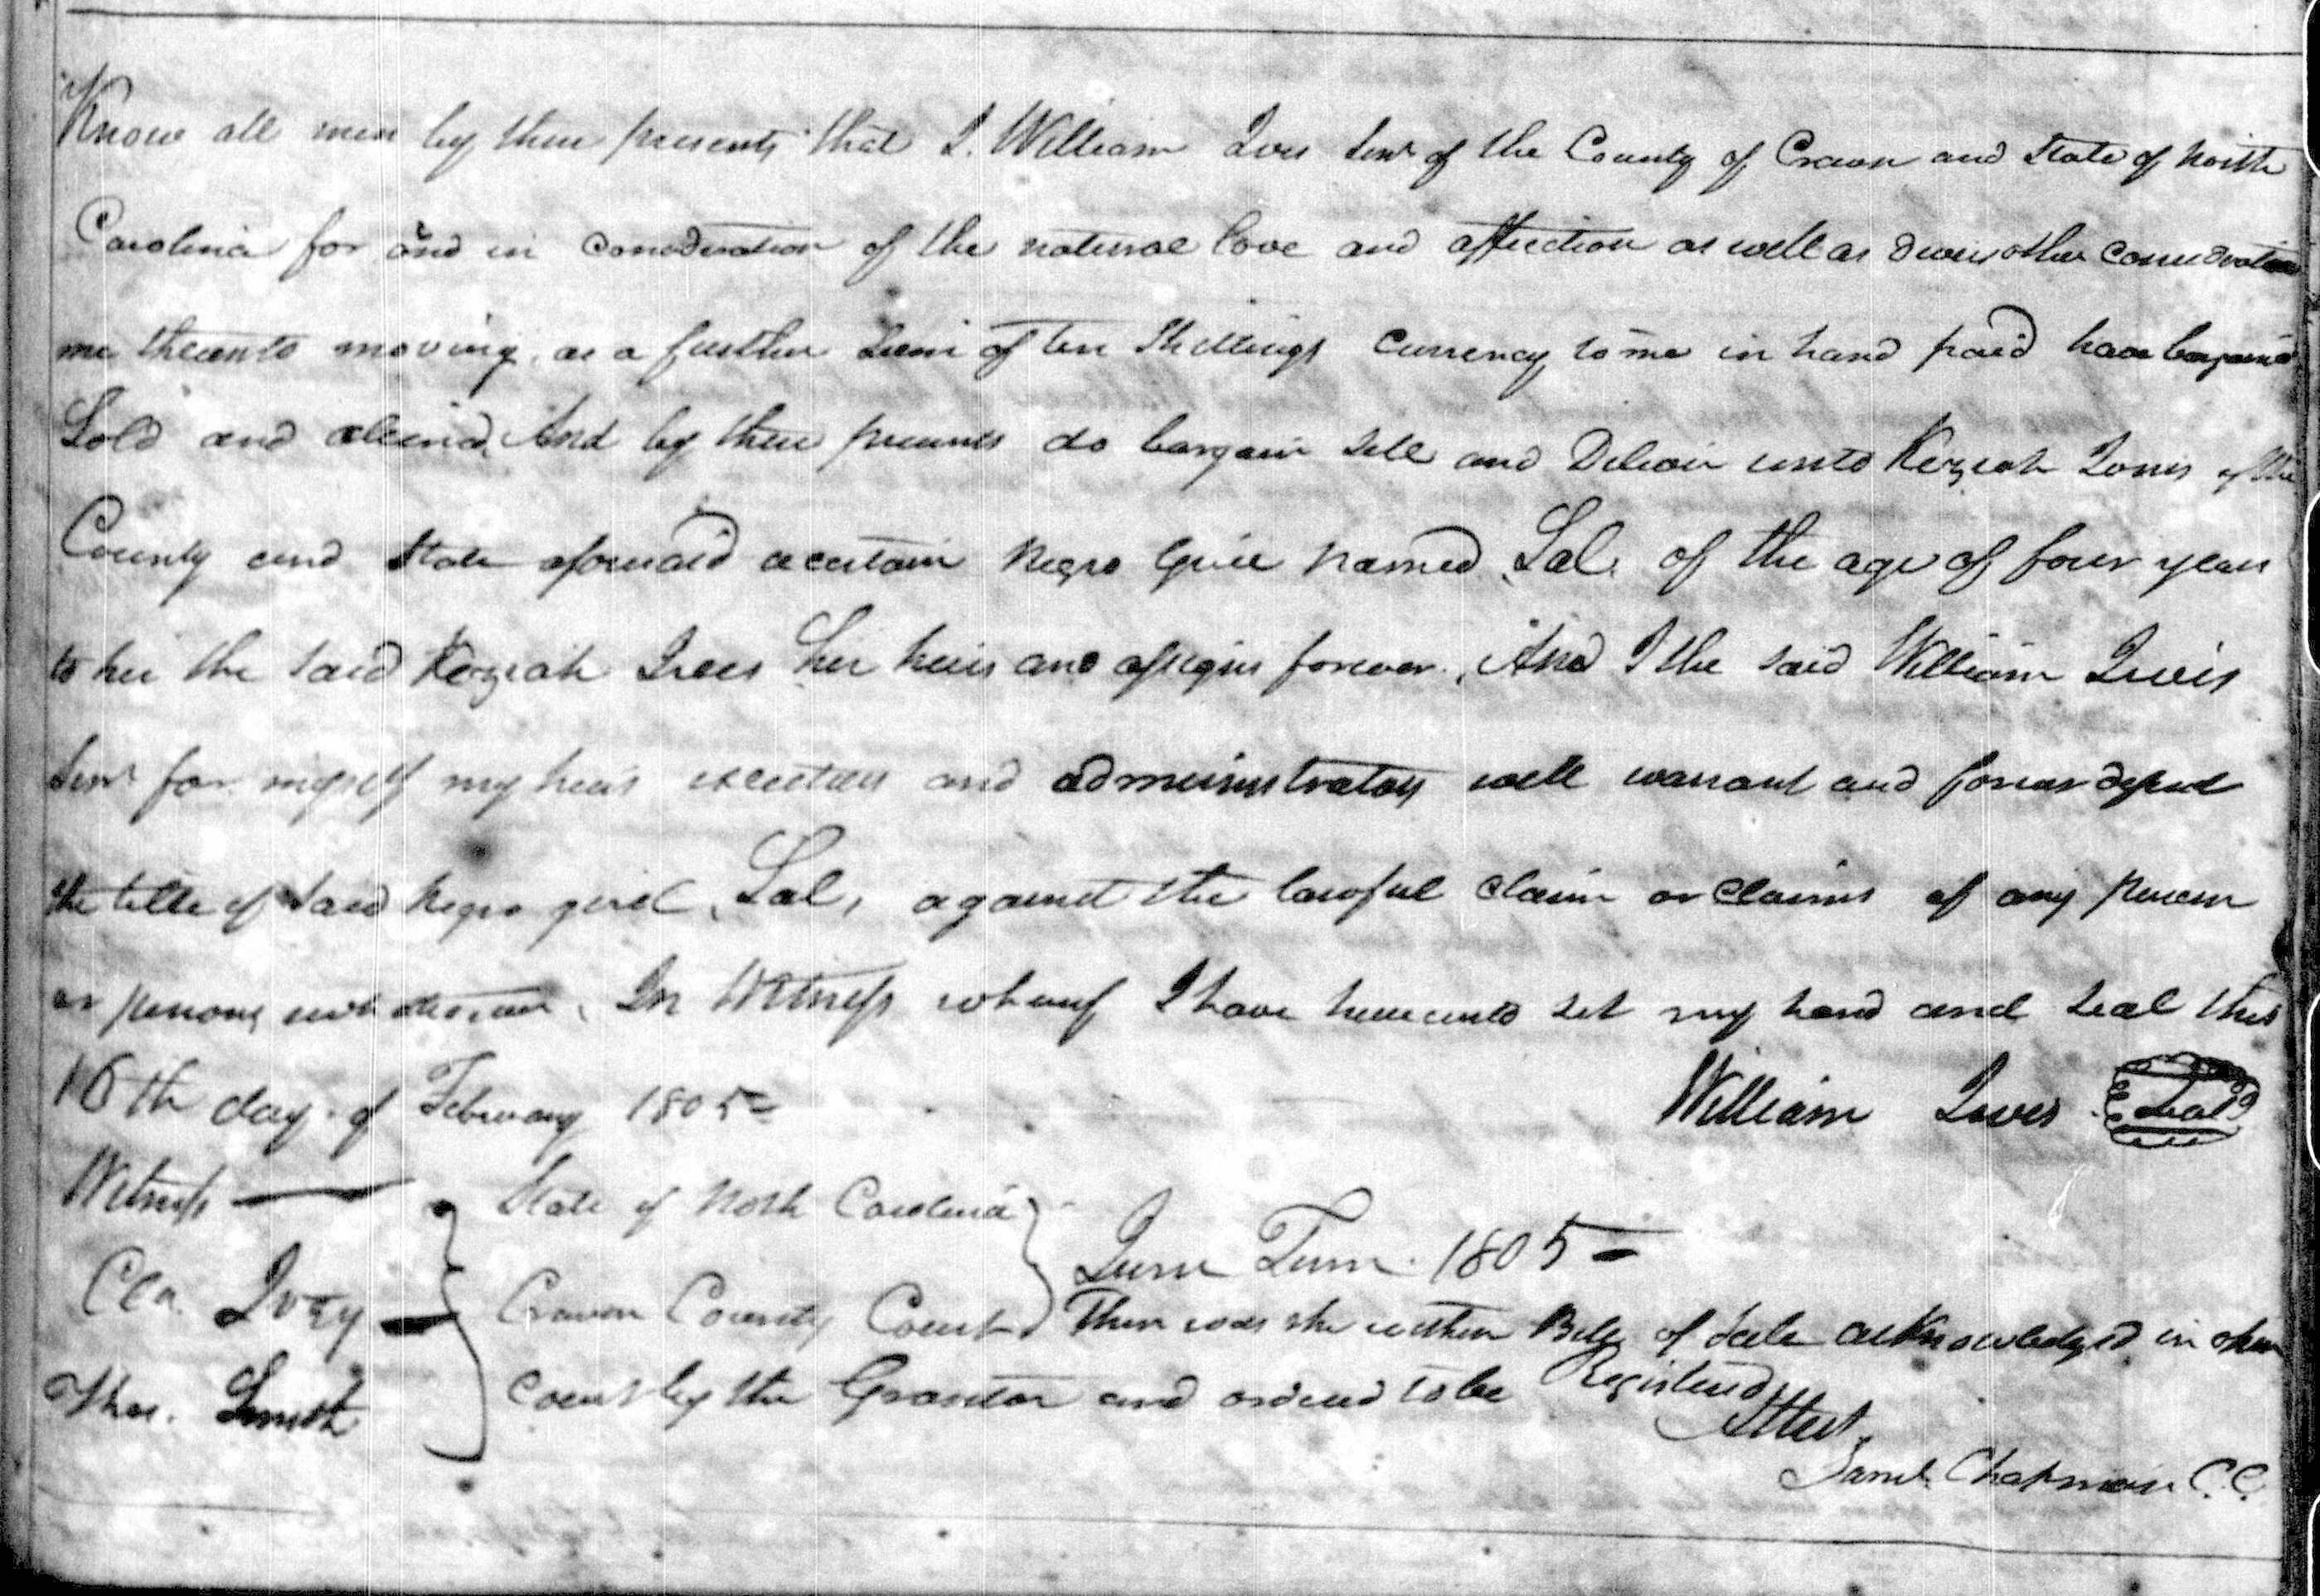 Know all men by these presents that I. William Ives Senr of the County of Craven and State of North
Carolina for and in consideration of the natural love and affection as well as divers other considerations
me thereunto moving, as a further Sum of ten Shillings Currency to me in hand paid have bargained
Sold and aliend, And by these presents do bargain Sell and Deliver unto Keziah of the
County and State aforesaid a certain Negro Girl named, Sal, of the age of four years
to her the said Keziah Ives her heirs and assigns forever. And I the said William Ives
Senr for myself my heirs executors and administrators will warrant and forever defend
the title of said Negro girl, Sal, against the lawful claim or claims of any person
or persons whatsoever, In Witness whereof I have hereunto set my hand and seal this
16th day of February 1805 = William Ives Seal
Witness
State of North Carolina
June Term 1805 -
Cla. Ivey
Craven County Court Then was the within Bill of Sale acknowledged in open
Thos. Smith
Court by the Grantor and ordered to be Registered
Attest,
Saml Chapman C.C.